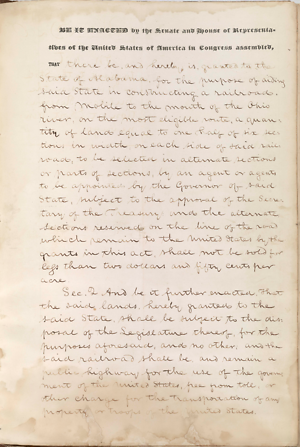 BE IT ENACTED by the Senate and House of Representa-
tives of the United States of America in Congress assembled,
THAT there be, and hereby is, granted to the
State of Alabama, for the purpose of aiding
said State in constructing a railroad
from Mobile to the mouth of the Ohio
river, on the most eligible route, a quan-
tity of land equal to one half of six sec-
tions in width on each side of said rail
road, to be selected in alternate sections
or parts of sections, by an agent or agents
to be appointed by the Governor of said
State, subject to the approval of the Secre-
tary of the Treasury; and the alternate
sections reserved on the line of the road
which remain to the United States by the
grants in this act, shall not be sold for
less than two dollars and fifty cents per
acre.
Sec. 2. And be it further enacted, That
the said lands hereby granted to the
said State, shall be subject to the dis-
posal of the Legislature thereof, for the
purposes aforesaid, and no other; and the
said railroad shall be and remain a
public highway for the use of the govern-
ment of the United States, free from toll or
other charge for the transportation of any
property or troops of the United States.